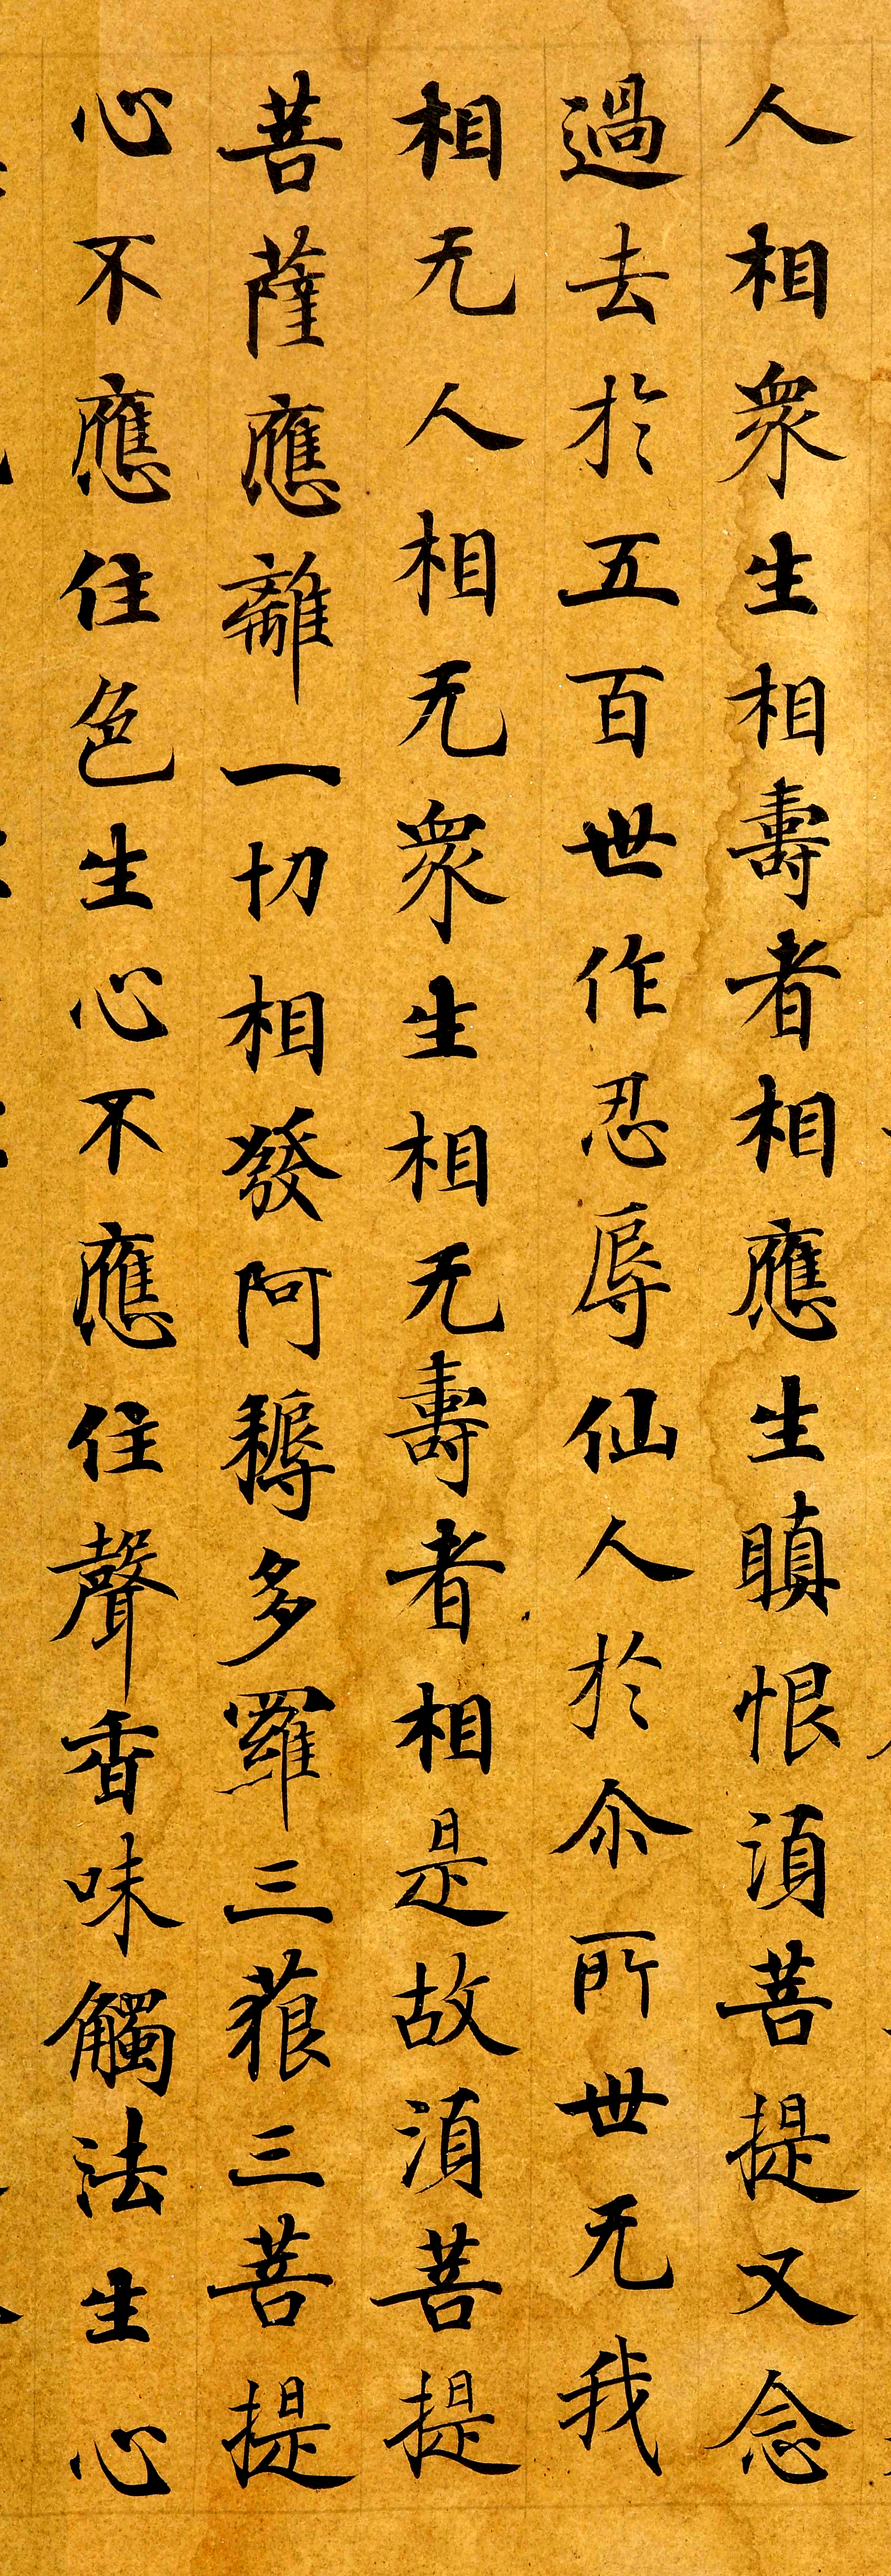 人相衆生相壽者相應生瞋恨湏菩提又念
過去於五百世作忍辱仙人於尒所世无我
相无人相无衆生相无壽者相是故湏菩提
菩薩應離一切相發阿耨多羅三藐三菩提
心不應住色生心不應住聲香味觸法生心